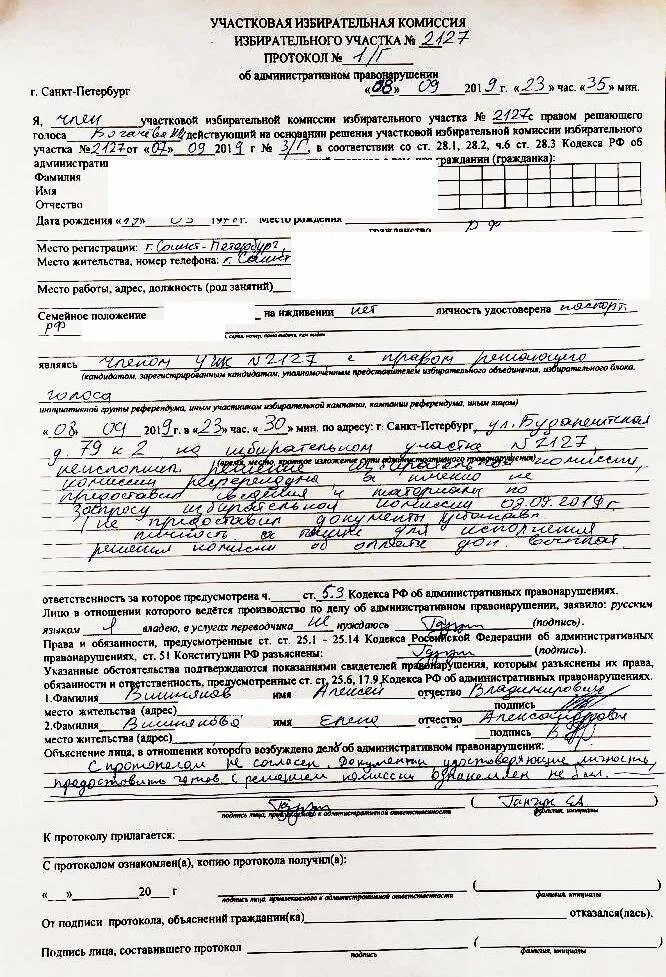 УЧАСТКОВАЯ ИЗБИРАТЕЛЬНАЯ КОМИССИЯ
ИЗБИРАТЕЛЬНОГО УЧАСТКА № 2127
ПРОТОКОЛ № 1/Г
об административном правонарушении
г. Санкт-Петербург «08» 09 2019 г. «23» час. «35» мин.
Я, член участковой избирательной комиссии избирательного участка № 2127 с правом решающего
голоса действующий на основании решения участковой избирательной комиссии избирательного
участка №2127 от «07» 09 2019 г № 3/Г, в соответствии со ст. 28.1, 28.2, ч.6 ст. 28.3 Кодекса РФ об
административ гражданин (гражданка):
Фамилия
Имя
Отчество
Дата рождения место рождения
гражданство РФ
Место регистрации: г. Санкт-Петербург,
Место жительства, номер телефона: г. Санкт
Место работы, адрес, должность (род занятий)
Семейное положение на иждивении нет личность удостоверена паспорт
РФ
(серия, номер, дата выдачи, кем выдан)
являясь членом УИК №2127 с правом решающего
(кандидатом, зарегистрированным кандидатом, уполномоченным представителем избирательного объединения, избирательного блока,
голоса
инициативной группы референдума, иным участником избирательной кампании, кампании референдума, иным лицом)
«08» 09 2019 г в «23» час. «30» мин. по адресу: г. Санкт-Петербург, ул. Будапештская
д. 79 к 2 на избирательном участке №2127
(время, место, краткое изложение сути административного правонарушения)
решение избирательной комиссии,
комиссии референдума, а именно не
предоставил сведения и материалы по
запросу избирательной комиссии 09.2019 г.
не предоставил документы
личность для исполнения
решения комиссии об
ответственность за которое предусмотрена ч. ст. 5.3 Кодекса РФ об административных правонарушениях.
Лицо в отношении которого ведётся производство по делу об административном правонарушении, заявило: русским
языком владею, в услугах переводчика не нуждаюсь (подпись).
Права и обязанности, предусмотренные ст. ст. 25.1 - 25.14 Кодекса Российской Федерации об административных
правонарушениях, ст. 51 Конституции РФ разъяснены: (подпись).
Указанные обстоятельства подтверждаются показаниями свидетелей правонарушения, которым разъяснены их права,
обязанности и ответственность, предусмотренные ст. ст. 25.6, 17.9 Кодекса РФ об административных правонарушениях.
1.Фамилия Вишняков имя Алексей отчество Владимирович
место жительства (адрес) подпись
2.Фамилия Вишнякова имя Елена отчество Александровна
место жительства (адрес) подпись
Объяснение лица, в отношении которого возбуждено дело об административном правонарушении:
С протоколом не согласен. Документы удостоверяющие личность
предоставить готов, с решением комиссии ознакомлен не был.
подпись лица, привлекаемого к административной ответственности фамилия, инициалы
К протоколу прилагается:
С протоколом ознакомлен(а), копию протокола получил(а):
«__»________20__ г
подпись лица, привлекаемого к административной ответственности фамилия, инициалы
От подписи протокола, объяснений гражданин(ка) отказался(лась).
Подпись лица, составившего протокол
подпись фамилия, инициалы